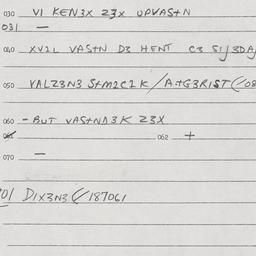 030 VI KEN3X Z3X UPVAS+N
031 —
040 XV2L VAS+N D3 HENT C3 S1/3DA
050 VALZ3N3 S+M2C2K / A+G3R1ST (/08
060 - BUT VAS+NΔ3K Z3X
061 062 +
070 —
01 D1X3N3 (/187061